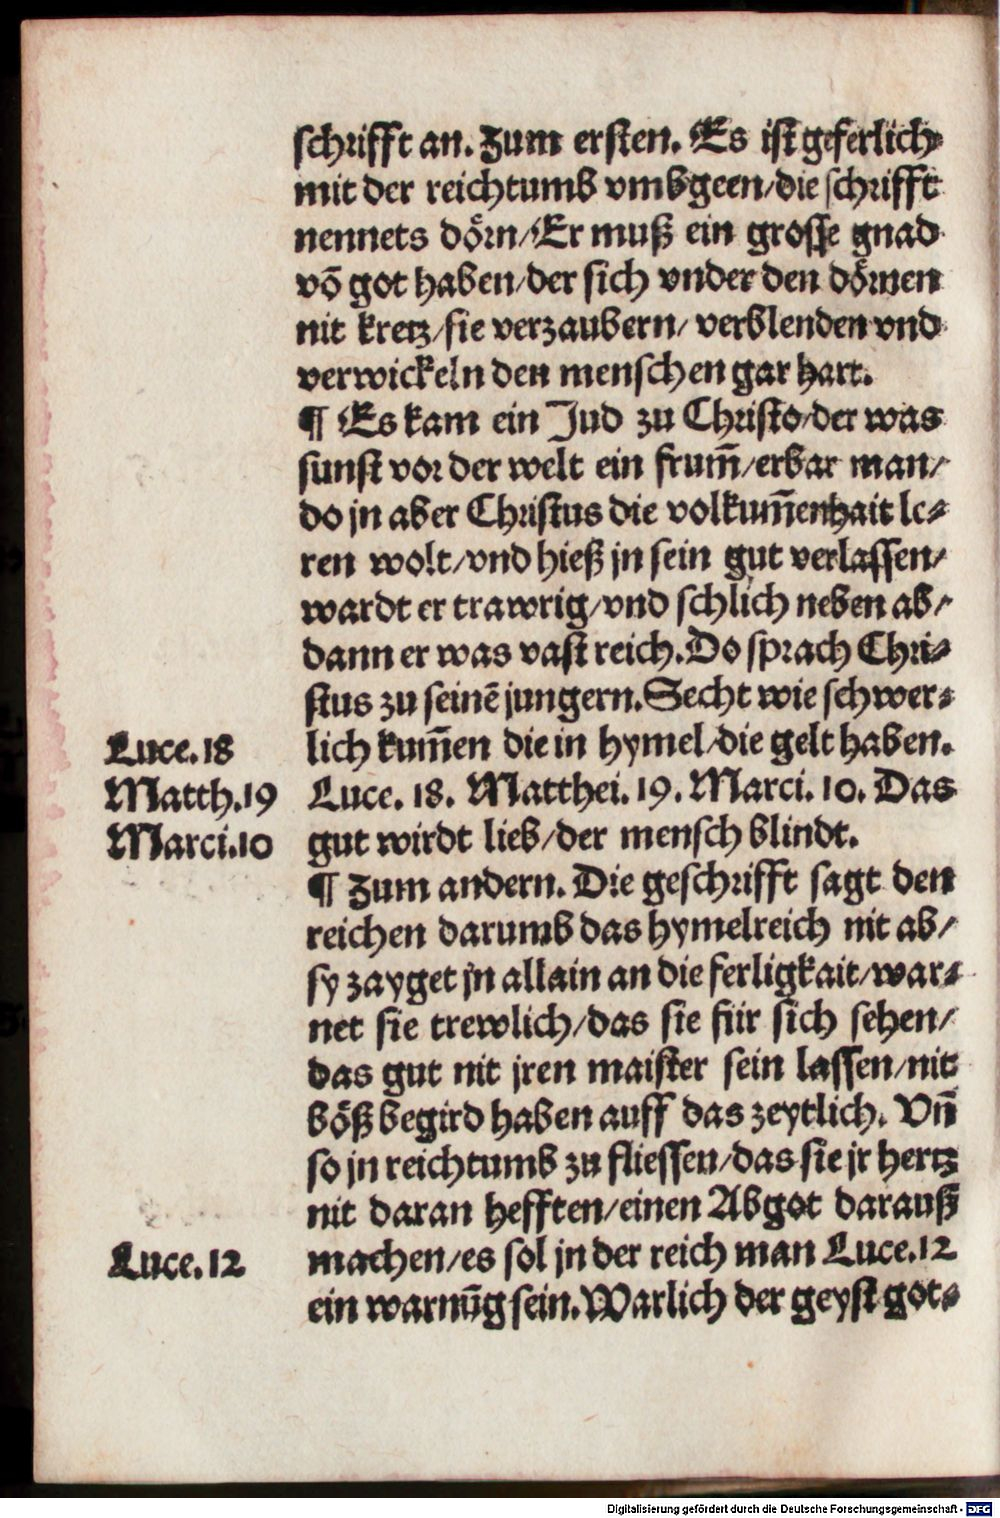 schrifft an. Zum ersten. Es ist geferlich
mit der reichtumb vmbgeen/die schrifft
nennets dörn/Er muß ein grosse gnad
vō got haben/der sich vnder den dörnen
nit kretz/sie verzaubern/ verblenden vnd
verwickeln den menschen gar hart.
¶ Es kam ein Jud zu Christo/der was
sunst vor der welt ein frum̄/erbar man/
do jn aber Christus die volkum̄enhait le⸗
ren wolt/vnd hieß jn sein gut verlassen/
wardt er trawrig/vnd schlich neben ab/
dann er was vast reich. Do sprach Chri⸗
stus zu seinē jungern. Secht wie schwer⸗
Luce. 18
lich kum̄en die in hymel/die gelt haben.
Matth. 19
Luce. 18. Matthei. 19. Marci. 10. Das
Marci. 10
gut wirdt lieb/der mensch blindt.
¶ Zum andern. Die geschrifft sagt den
reichen darumb das hymelreich nit ab/
sy zayget jn allain an die ferligkait/war⸗
net sie trewlich/das sie für sich sehen/
das gut nit jren maister sein lassen/nit
böß begird haben auff das zeytlich. Vn̄
so jn reichtumb zu fliessen/das sie jr hertz
nit daran hefften/einen Abgot darauß
Luce. 12
machen/es sol jn der reich man Luce. 12
ein warnūg sein. Warlich der geyst got⸗
Digitalisierung gefördert durch die Deutsche Forschungsgemeinschaft - DFG